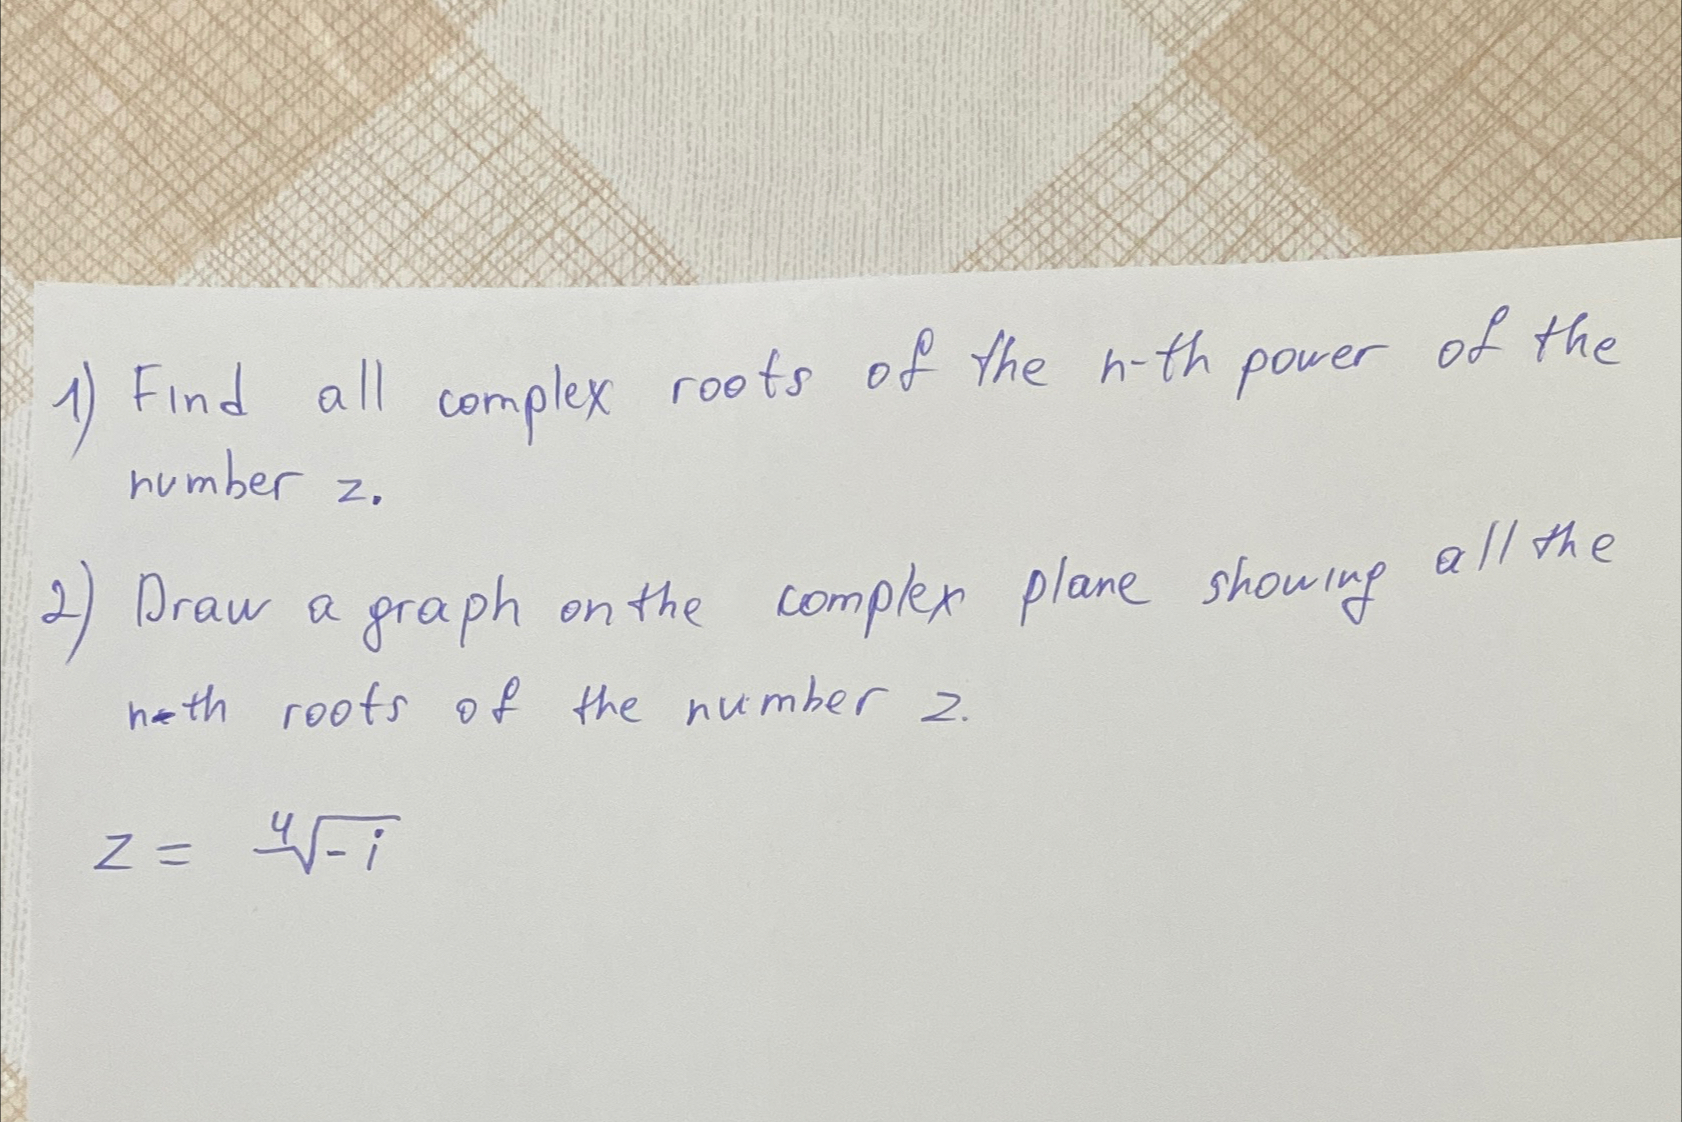 1) Find all complex roots of the n-th power of the
number z.
2) Draw a graph on the complex plane showing all the
n-th roots of the number z.
z = ∜-i